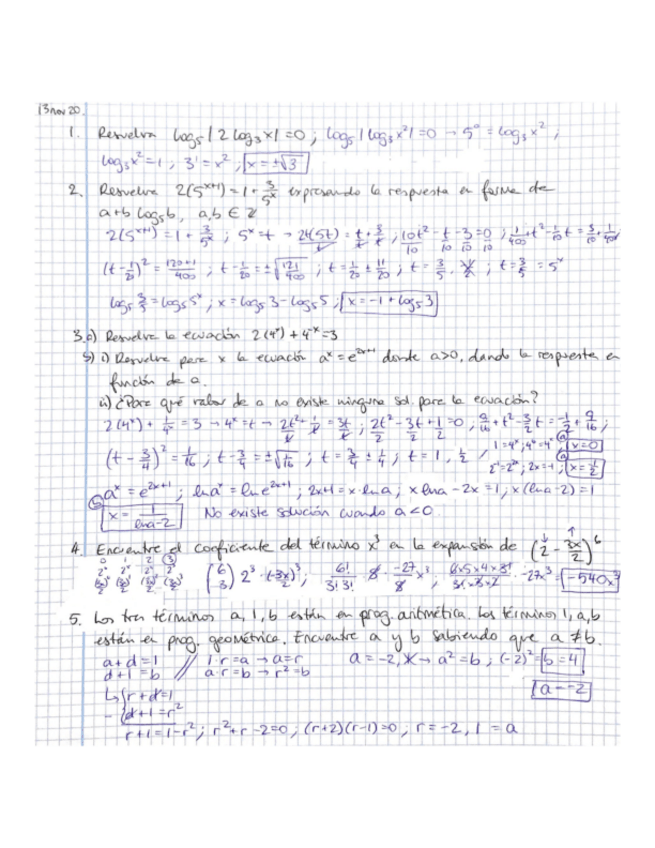 13 nov 20.
1. Resuelva log₅|2 log₃x|=0 ; log₅|log₃x²|=0 → 5⁰ = log₃x² ;
log₃x²=1 ; 3¹=x² ; x=±√3
2. Resuelva 2(5ˣ⁺¹)=1+3/5ˣ expresando la respuesta en forma de
a+b log₅b, a,b ∈ Z
2(5ˣ⁺¹)=1+3/5ˣ ; 5ˣ=t → ; 10t²/10 - t/10 - 3/10 = 0/10 ; 1/400+t²-1/10 t = 3/10+1/400
(t-1/20)² = 120+1/400 ; t-1/20=±√121/400 ; t=1/20±11/20 ; t=3/5, ; t=3/5=5ˣ
log₅3/5=log₅5ˣ ; x=log₅3-log₅5 ; x=-1+log₅3
3. a) Resuelva la ecuación 2(4ˣ)+4⁻ˣ=3
b) i) Resuelva para x la ecuación aˣ=e²ˣ⁺¹ donde a>0, dando la respuesta en
función de a.
ii) ¿Para qué valor de a no existe ninguna sol. para la ecuación?
2(4ˣ)+1/4ˣ=3 → 4ˣ=t → 2t²/t+1/t=3t/t ; 2t²/2-3t/2+1/2=0 ; 9/16+t²-3/2 t=-1/2+9/16 ;
(t-3/4)²=1/16 ; t-3/4=±√1/16 ; t=3/4±1/4 ; t=1, 1/2 / 1=4ˣ ; 4⁰=4ˣ x=0
2⁻¹=2²ˣ ; 2x=-1 ;
b) aˣ=e²ˣ⁺¹ ; ln aˣ=ln e²ˣ⁺¹ ; 2x+1=x·ln a ; x ln a-2x=1 ; x(ln a-2)=1
x=1/ln a-2 No existe solución cuando a<0.
4. Encuentre el coeficiente del término x³ en la expansión de (2-3x/2)⁶
0 1 2 3
(6 3) 2³·(-3x/2)³ ; 6!/3!3!·8·-27/8 x³ ; ·-27x³ = -540x³
5. Los tres términos a, 1, b están en prog. aritmética. Los términos 1, a, b
están en prog. geométrica. Encuentre a y b sabiendo que a≠b.
a+d=1 // 1·r=a → a=r a=-2, → a²=b ; (-2)²=b=4
d+1=b // a·r=b → r²=b a=-2
↳ {r+d=1
- {d+1=r²
r+1=1-r² ; r²+r-2=0 ; (r+2)(r-1)=0 ; r=-2, 1 = a